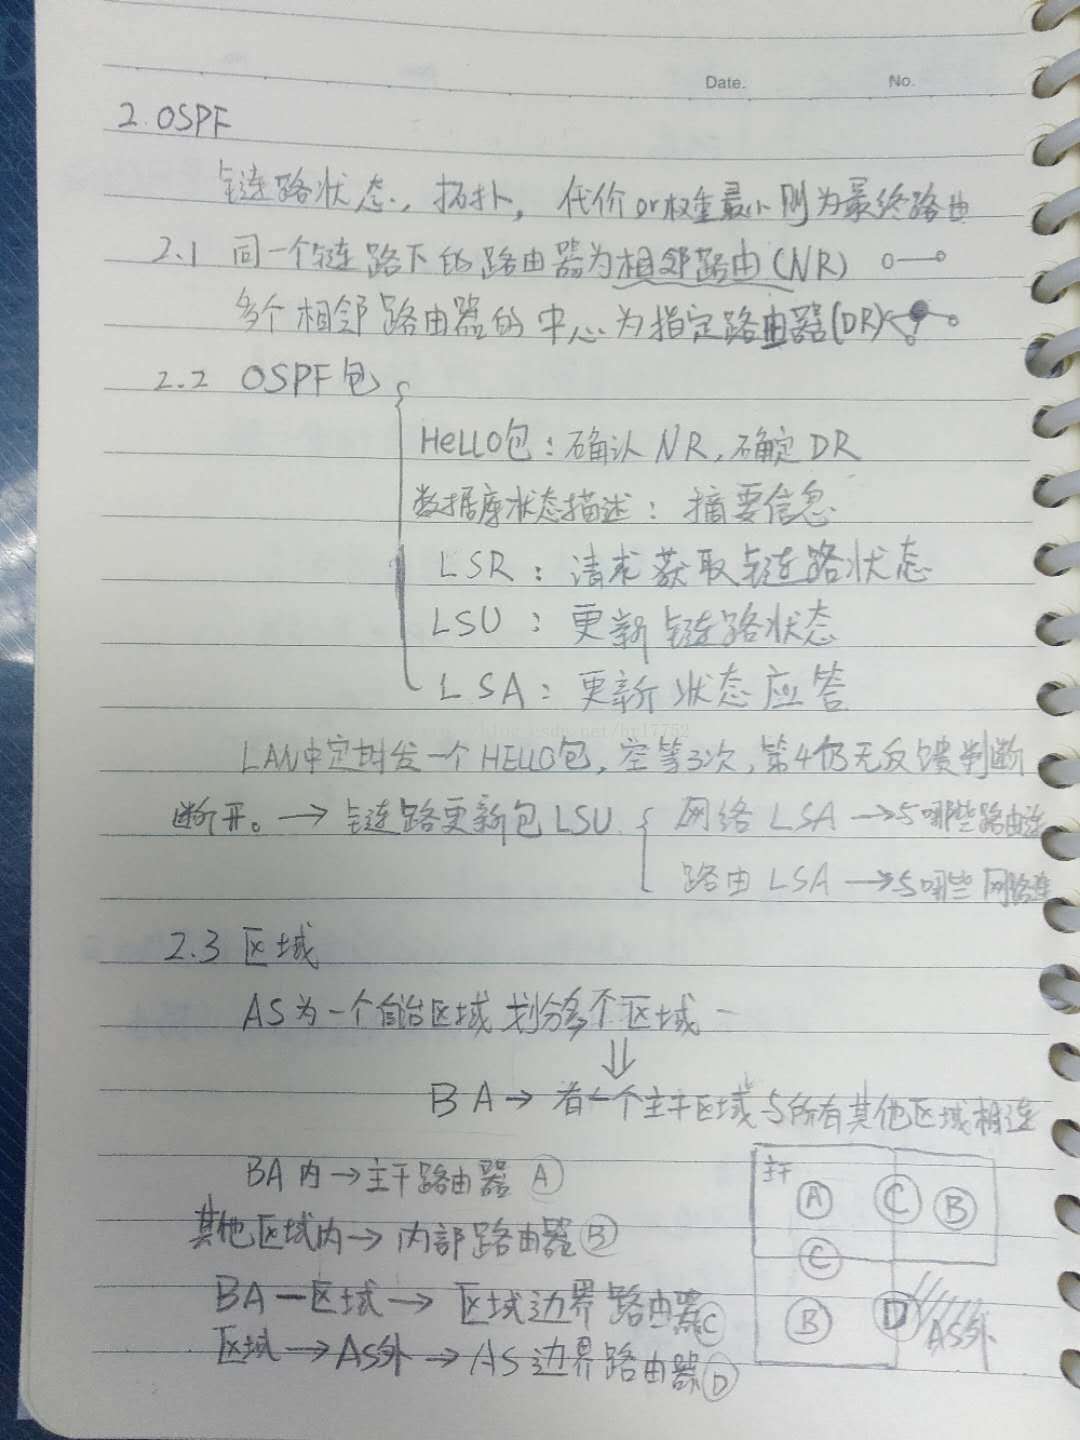 Date.  No.
2. OSPF
链路状态, 拓扑, 代价or权重最小则为最终路由
2.1 同一个链路下的路由器为相邻路由(NR)
多个相邻路由器的中心为指定路由器(DR)
2.2 OSPF包
HELLO包：确认NR, 确定DR
数据库状态描述：摘要信息
LSR：请求获取链路状态
LSU：更新链路状态
LSA：更新状态应答
blog.csdn.net/hyl7752
LAN中定时发一个HELLO包, 空等3次, 第4仍无反馈判断
断开。→ 链路更新包LSU { 网络LSA → 与哪些路由连
路由LSA → 与哪些网络连
2.3 区域
AS为一个自治区域 划分多个区域
⇓
BA → 有一个主干区域与所有其他区域相连
BA内→主干路由器 Ⓐ
主干 Ⓐ Ⓒ Ⓑ
其他区域内→内部路由器 Ⓑ
Ⓒ
BA—区域→区域边界路由器 Ⓒ
Ⓑ Ⓓ AS外
区域→AS外→AS边界路由器 Ⓓ